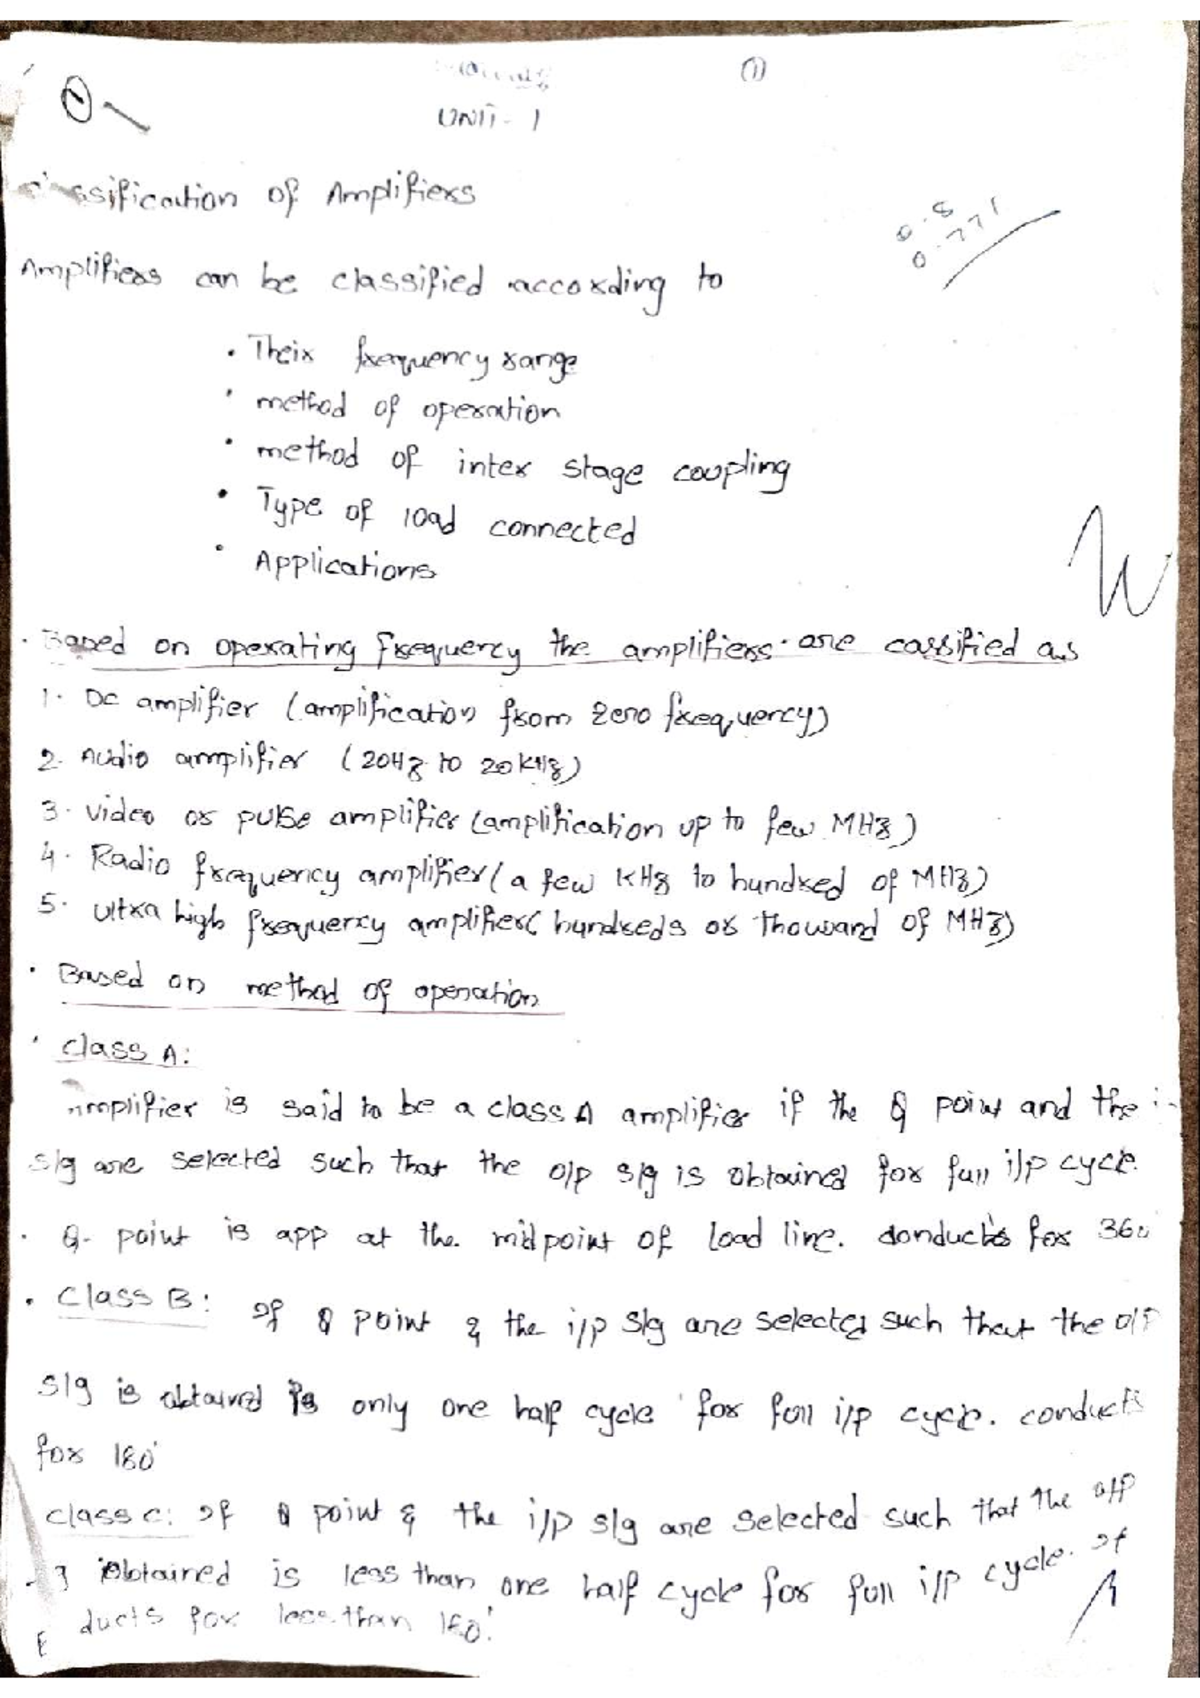 ①
UNIT - 1
Classification of Amplifiers
0.8
0.771
Amplifiers can be classified according to
• Their frequency range
• method of operation
• method of inter stage coupling
• Type of load connected
• Applications
• Based on operating frequency the amplifiers are cassified as
1. DC amplifier (amplification from zero frequency)
2. Audio amplifier (20Hz to 20KHz)
3. Video or pulse amplifier (amplification up to few MHz)
4. Radio frequency amplifier (a few KHz to hundred of MHz)
5. Ultra high frequency amplifier( hundreds or thousand of MHz)
• Based on method of operation
• Class A:
Amplifier is said to be a class A amplifier if the Q point and the i-
s/g are selected such that the o/p s/g is obtained for full i/p cycle.
• Q- point is app at the midpoint of load line. conducts for 360
• Class B: If Q point & the i/p s/g are selected such that the o/p
s/g is obtained is only one half cycle for full i/p cycle. conducts
for 180°
Class C: If Q point & the i/p s/g are selected such that the o/p
g obtained is less than one half cycle for full i/p cycle. It
ducts for less than 180°.